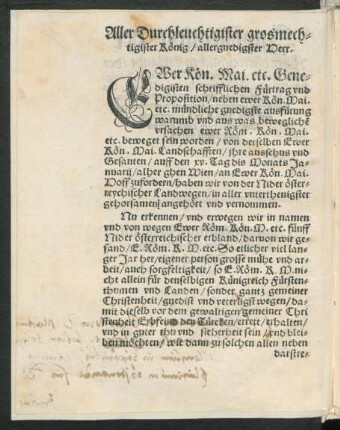 Aller Durchleuchtigister großmech-
tigister König / allergnedigster Herr.
EWer Kön. Mai. etc. Gene-
digisten schrifflichen Fürtrag vnd
Proposition / neben ewer Kön. Mai.
etc. mündliche gnedigste ausfürung
warumb vnd aus was bewegliche
vrsachen ewer Röm. Kön. Mai.
etc. beweget sein worden / von derselben Ewer
Kön. Mai. Landschafften / ihre ausschus vnd
Gesanten / auff den xv. Tag dis Monats Ja-
nuarij / alher ghen Wien / an Ewer Kön. Mai.
Hoff zufordern / haben wir von der Nider öster-
rychischer Landwegen / in aller vnterthenigster
gehorsamen / angehört vnd vernommen.
Nu erkennen / vnd erwegen wir in namen
vnd von wegen Ewer Röm. Kön. M. etc. fünff
Nider österreichischer erbland / daruon wir ge-
sand / E. Röm. K. M. etc. So etlicher viel lan-
ger Jar her / eigener person grosse mühe vnd ar-
beit / auch sorgfeltigkeit / so E. Röm. K. M. ni-
cht allein für denselbigen Künigreich Fürsten-
thumen vnd Landen / sonder gantz gemeiner
Christenheit / gnedist vnd veterligst wegen / da-
mit dieselb vor dem gewaltigen gemeiner Chri
stenheit Erbfeind den Türcken / errett / erhalten /
vnd in guter rhu vnd sicherheit sein / vnd blei-
ben möchten / wie dann zu solchen allen neben
darstre-